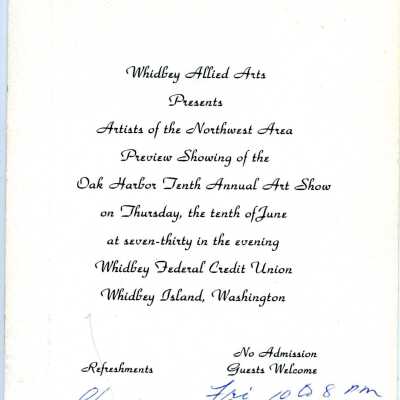 Whidbey Allied Arts
Presents
Artists of the Northwest Area
Preview Showing of the
Oak Harbor Tenth Annual Art Show
on Thursday, the tenth of June
at seven-thirty in the evening
Whidbey Federal Credit Union
Whidbey Island, Washington
No Admission
Refreshments Guests Welcome
Fri 10 to 8 PM